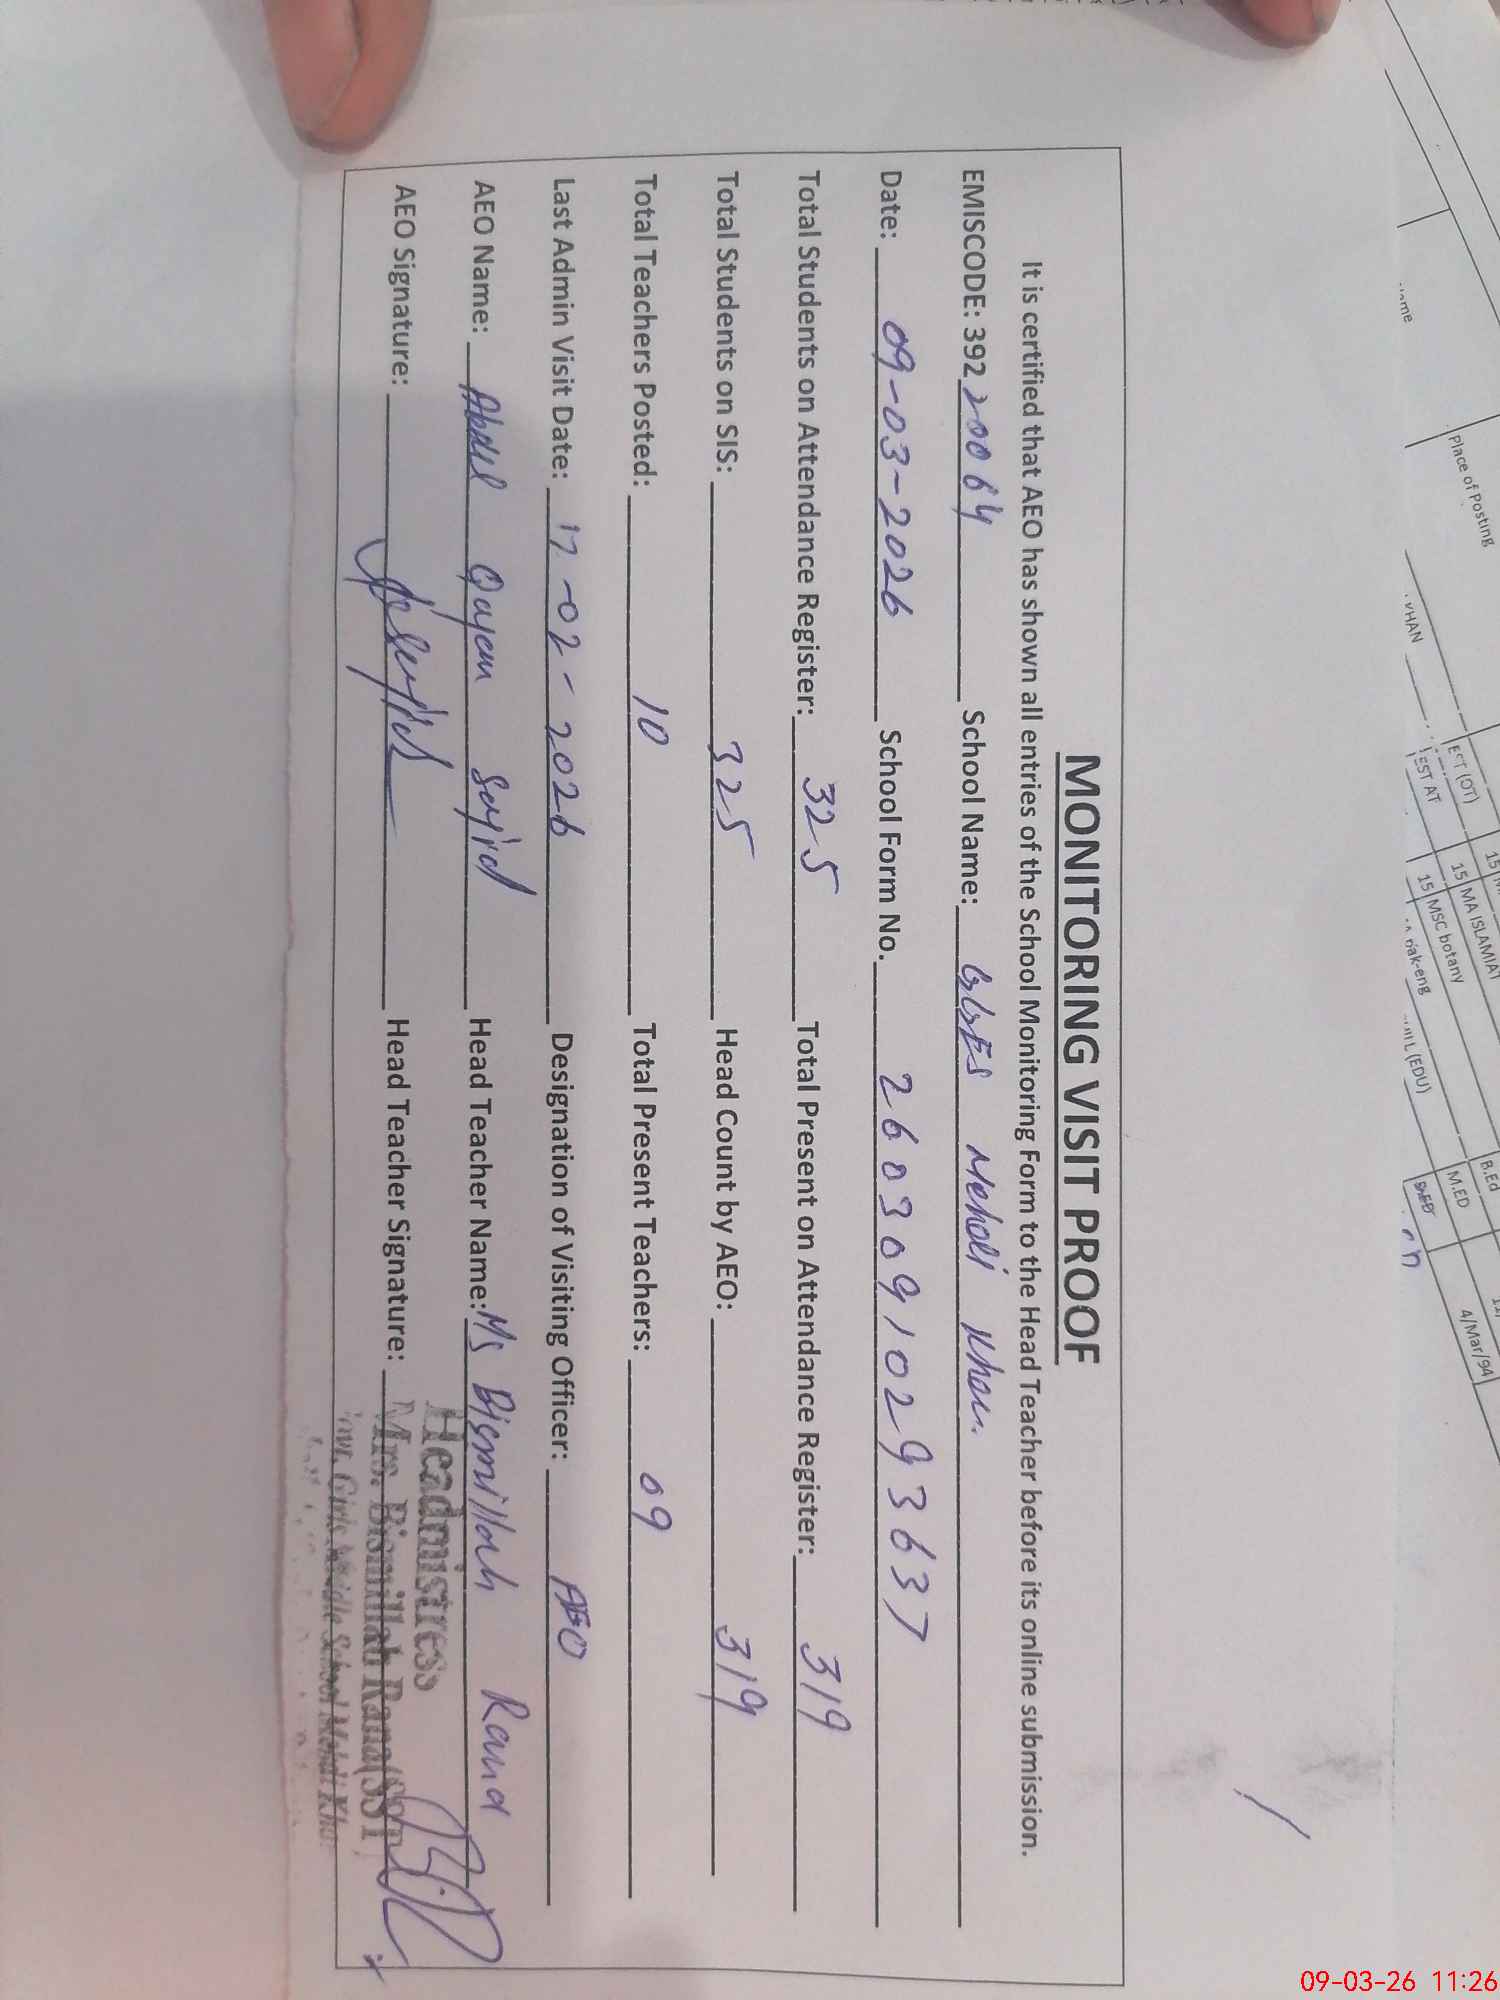 MONITORING VISIT PROOF
It is certified that AEO has shown all entries of the School Monitoring Form to the Head Teacher before its online submission.
EMISCODE: 39220064 School Name: GGES Mehdi Khan.
Date: 09-03-2026 School Form No. 26030910293637
Total Students on Attendance Register: 325 Total Present on Attendance Register: 319
Total Students on SIS: 325 Head Count by AEO: 319
Total Teachers Posted: 10 Total Present Teachers: 09
Last Admin Visit Date: 17-02-2026 Designation of Visiting Officer: AEO
AEO Name: Abdul Qayum Sajid Head Teacher Name: Ms Bismillah Rana
AEO Signature: Head Teacher Signature:
Headmistress
Mrs. Bismillah Rana (SST
Govt. Girls Middle School Mehdi Khan
Place of Posting
KHAN
EST (OT)
EST AT
15 MA ISLAMIAT
15 MSC botany
B.Ed
M.ED
4/Mar/94
09-03-26 11:26